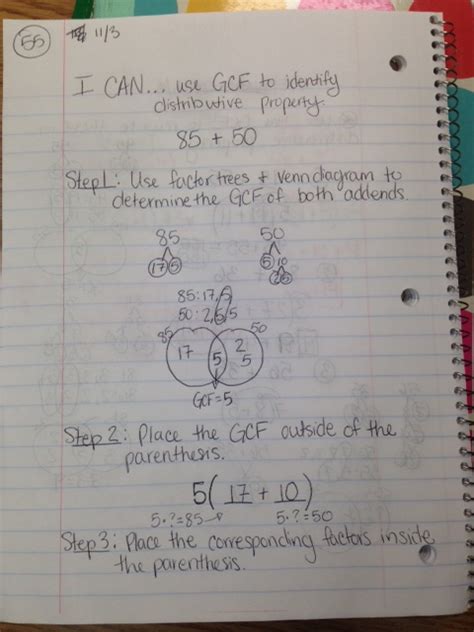 55
11/3
I CAN... use GCF to identify
distributive property.
85 + 50
Step 1: Use factor trees + venn diagram to
determine the GCF of both addends.
85 50
17 5 5 10
2 5
85: 17, 5
50: 2, 5, 5
85 50
17 5 2
5
GCF=5
Step 2: Place the GCF outside of the
parenthesis.
5( 17 + 10 )
5·?=85 5·?=50
Step 3: Place the corresponding factors inside
the parenthesis.